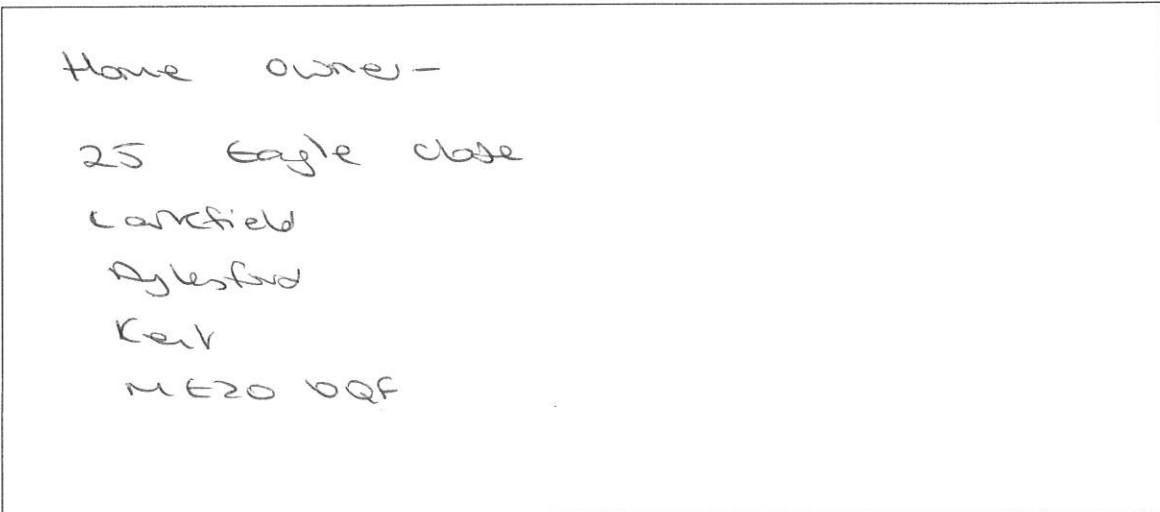 Home owner -
25 Eagle close
Larkfield
Aylesford
Kent
ME20